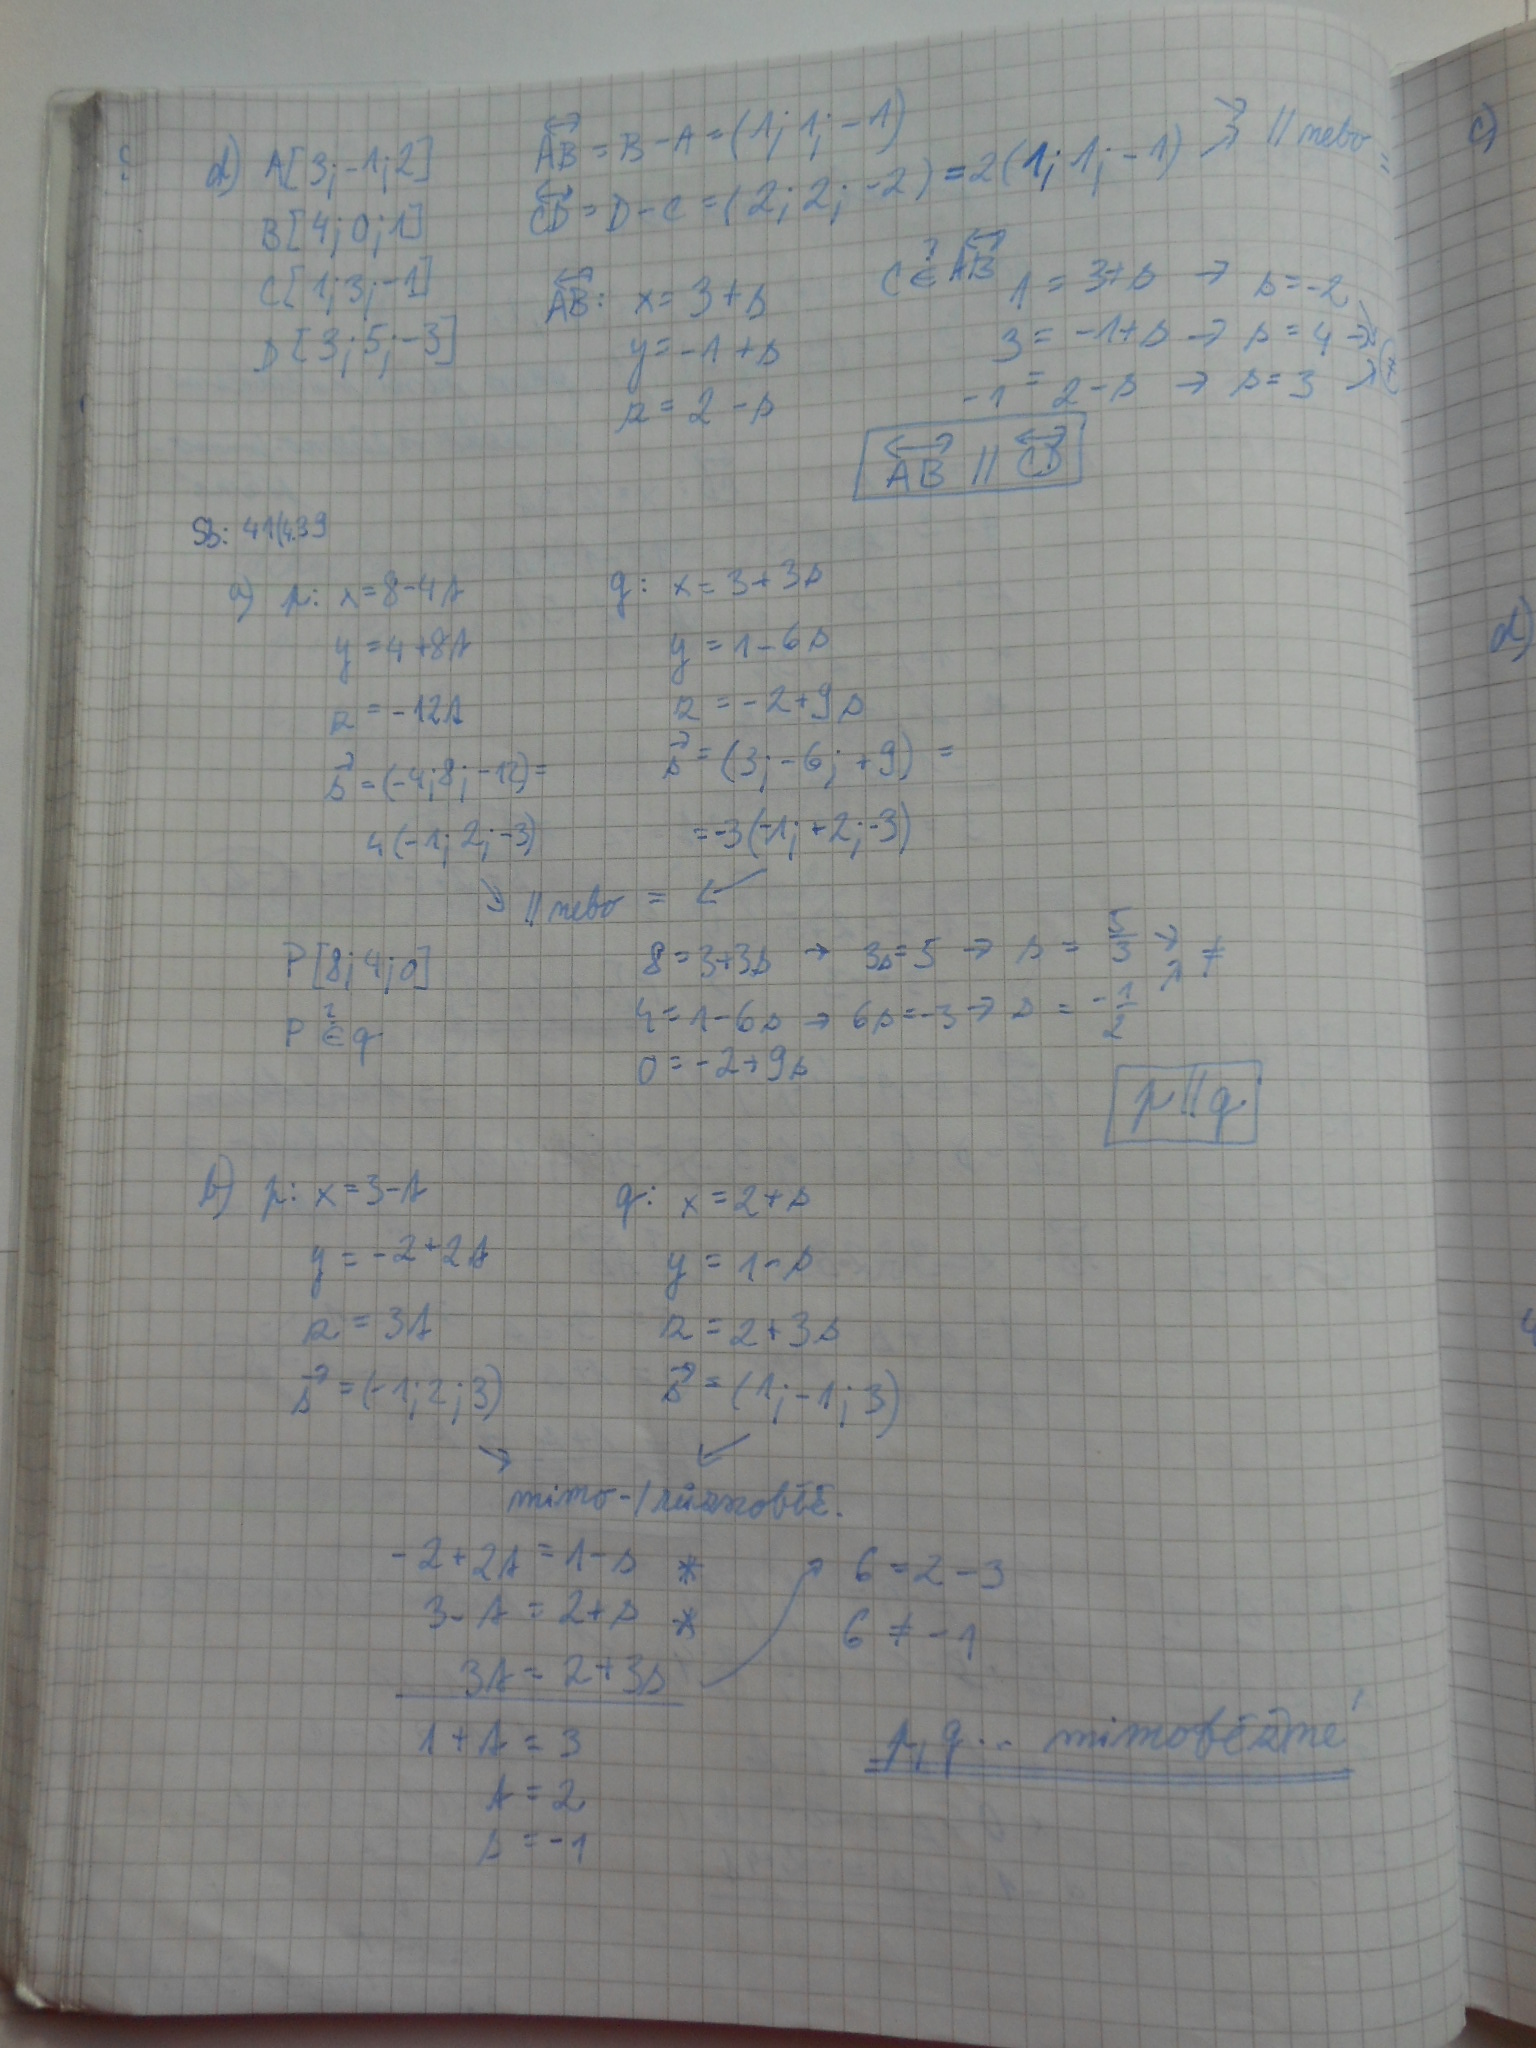 d) A[3;-1;2]
B[4;0;1]
C[1;3;-1]
D[3;5;-3]
AB = B-A = (1;1;-1)
CD = D-C = (2;2;-2) = 2(1;1;-1) // nebo =
AB: x = 3+s
y = -1+s
z = 2-s
C ∈? AB
1 = 3+s → s = -2
3 = -1+s → s = 4
-1 = 2-s → s = 3 ≠
AB // CD
Sb: 41/4.39
a) p: x = 8-4t
y = 4+8t
z = -12t
s = (-4;8;-12) =
4(-1;2;-3)
q: x = 3+3s
y = 1-6s
z = -2+9s
s = (3;-6;+9) =
= -3(-1;+2;-3)
// nebo =
P[8;4;0]
P ∈? q
8 = 3+3s → 3s = 5 → s = 5/3
4 = 1-6s → 6s = -3 → s = -1/2 ≠
0 = -2+9s
p // q
b) p: x = 3-t
y = -2+2t
z = 3t
s = (-1;2;3)
q: x = 2+s
y = 1-s
z = 2+3s
s = (1;-1;3)
mimo-/různoběž.
-2+2t = 1-s *
3-t = 2+s *
3t = 2+3s
1+t = 3
t = 2
s = -1
6 = 2-3
6 ≠ -1
p,q... mimoběžné
c)
d)